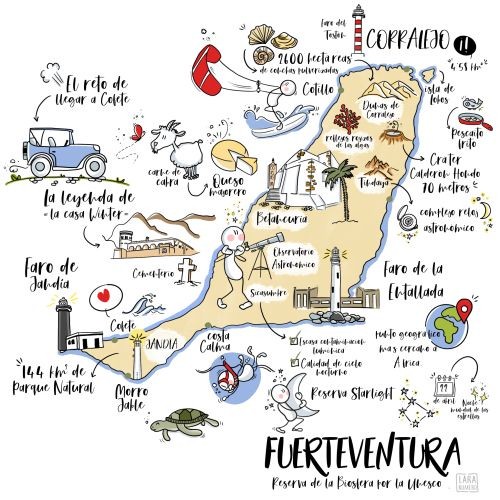 Faro del
Tostón
CORRALEJO
2600 hectáreas
de conchas pulverizadas
4.58 km²
El reto de
llegar a Cofete
Cotillo
isla de
lobos
Dunas de
Corralejo
reflejos rojizos
de las algas
Pescaito
frito
carne de
cabra
Queso
majorero
Tindaya
Cráter
Calderón Hondo
70 metros
La leyenda de
-la casa Winter-
Betancuria
complejo reloj
astronómico
Cementerio
Observatorio
Astronómico
Sicasumbre
Faro de
Jandía
Faro de la
Entallada
Cofete
JANDÍA
Costa
Calma
Escasa contaminación
lumínica
Calidad de cielo
nocturno
Punto geográfico
más cercano a
África
144 km² de
Parque Natural
Morro
Jable
Reserva Starlight
de abril
Noche
mundial de las
estrellas
FUERTEVENTURA
Reserva de la Biosfera por la Unesco
LARA